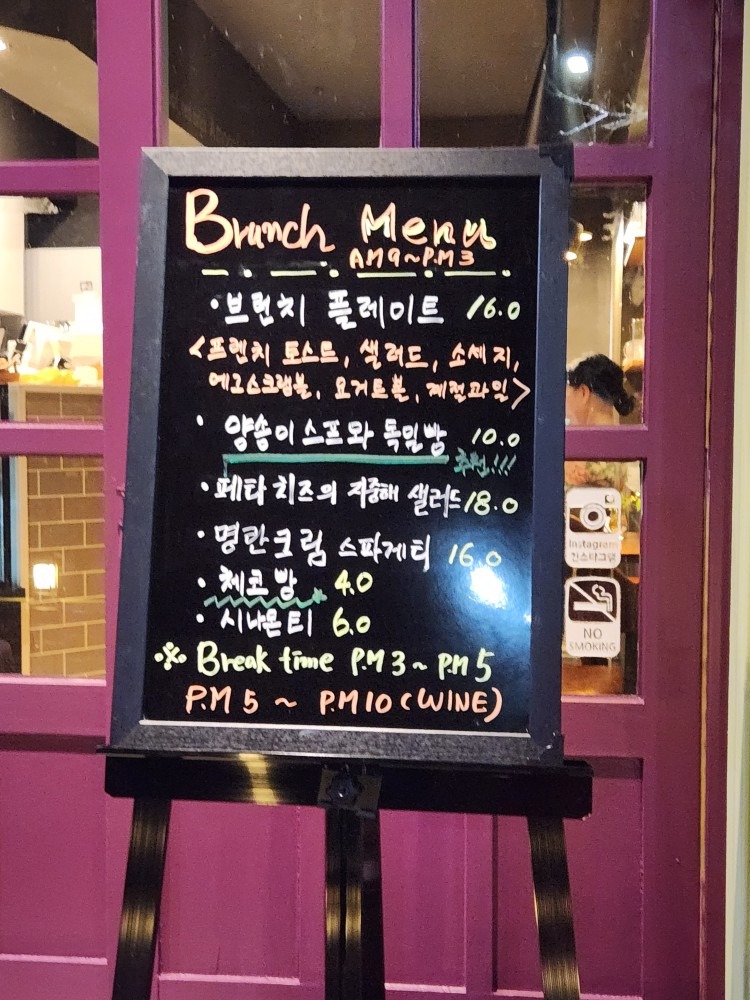 Brunch Menu
AM 9~P.M 3
·브런치 플레이트 16.0
<프렌치 토스트, 샐러드, 소세지,
에그스크램블, 요거트볼, 제철과일>
· 양송이스프와 독일빵 10.0
추천!!!
·페타치즈의 지중해 샐러드 18.0
·명란크림 스파게티 16.0
·체코빵 4.0
·시나몬티 6.0
※ Break time P.M 3~ P.M 5
P.M 5 ~ P.M 10 (WINE)
Instagram
인스타그램
NO
SMOKING